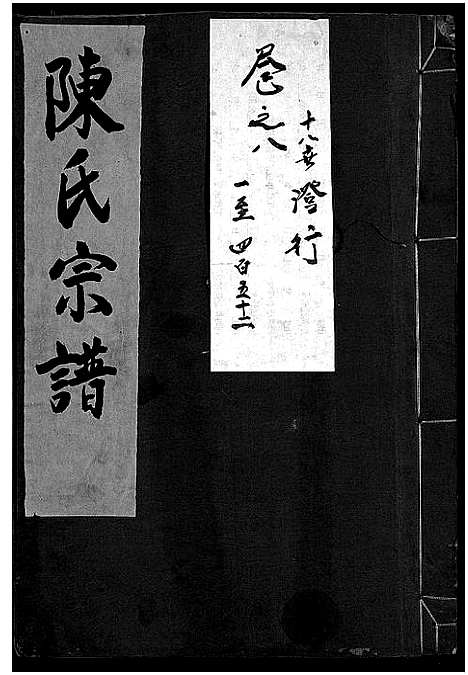 陳氏宗譜
十八世 澄行
卷之八
一至四百五十二